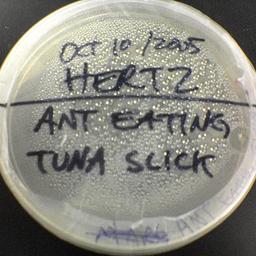 OCT 10/2005
HERTZ
ANT EATING
TUNA SLICK